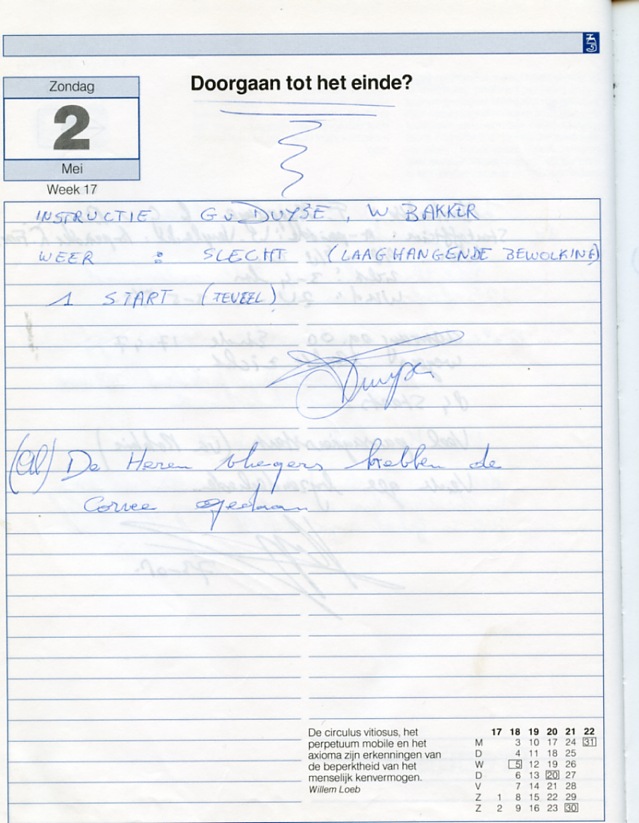 Zondag
2
Mei
Week 17
Doorgaan tot het einde?
INSTRUCTIE G v DUYSE, W BAKKER
WEER : SLECHT (LAAGHANGENDE BEWOLKING)
1 START (TEVEEL)
De Heren vliegers hebben de
Corvee gedaan
De circulus vitiosus, het
perpetuum mobile en het
axioma zijn erkenningen van
de beperktheid van het
menselijk kenvermogen.
Willem Loeb
17 18 19 20 21 22
M 3 10 17 24 31
D 4 11 18 25
W 5 12 19 26
D 6 13 20 27
V 7 14 21 28
Z 1 8 15 22 29
Z 2 9 16 23 30